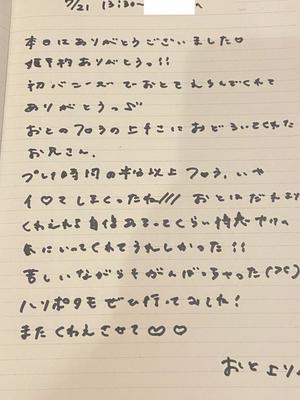 7/21 13:30~
本日はありがとうございました♡
姫予約ありがとうっ!!
初バニーズでおとてえらんでくれて
ありがとうっ
おとのフロラの上手さにおどろいてくれた
お兄さん、
プレイ時間の半分以上フロラ、いや
イ♡てしまくったね/// おとはだれより
くわえれる自信あるってくらい特意だけん
気にいってくれてうれしかった!!
苦しいながらもがんばっちゃった(><)
ハリポタもぜひ行ってみてね!
またくわえさせて♡♡
おとより